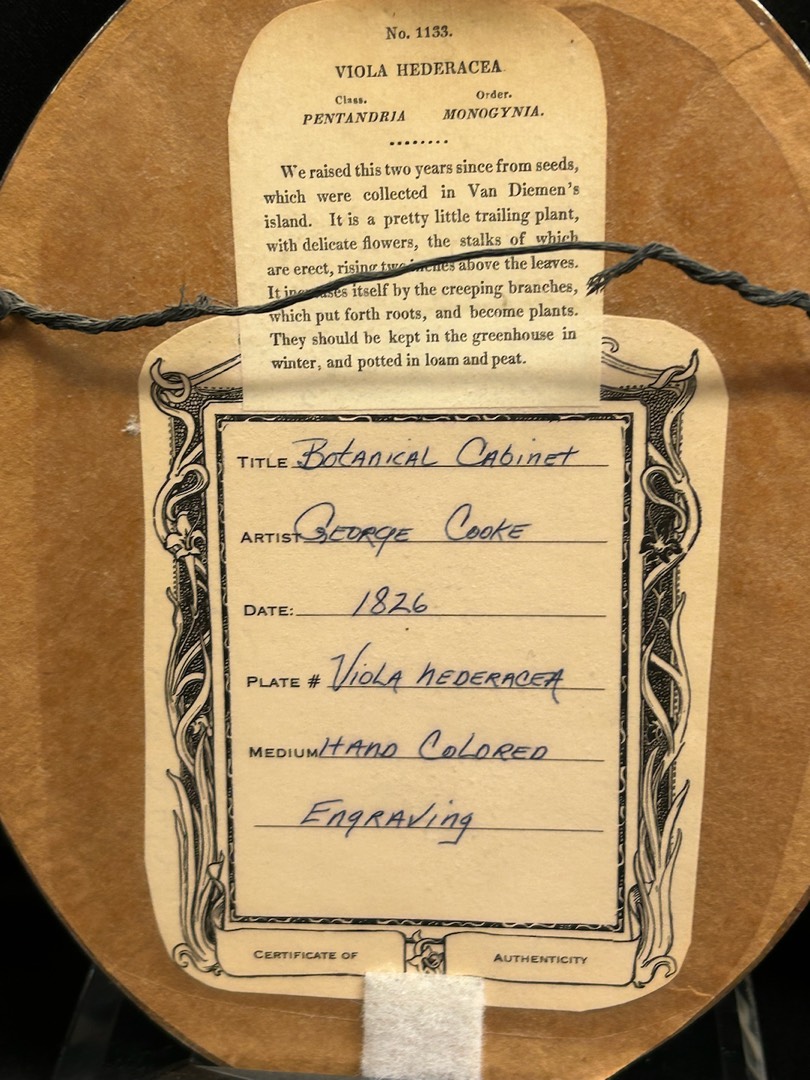 No. 1133.
VIOLA HEDERACEA
Class. Order.
PENTANDRIA MONOGYNIA.
........
We raised this two years since from seeds,
which were collected in Van Diemen's
island. It is a pretty little trailing plant,
with delicate flowers, the stalks of which
are erect, rising two inches above the leaves.
It increases itself by the creeping branches,
which put forth roots, and become plants.
They should be kept in the greenhouse in
winter, and potted in loam and peat.
TITLE Botanical Cabinet
ARTIST George Cooke
DATE: 1826
PLATE # Viola hederacea
MEDIUM Hand Colored
Engraving
CERTIFICATE OF AUTHENTICITY